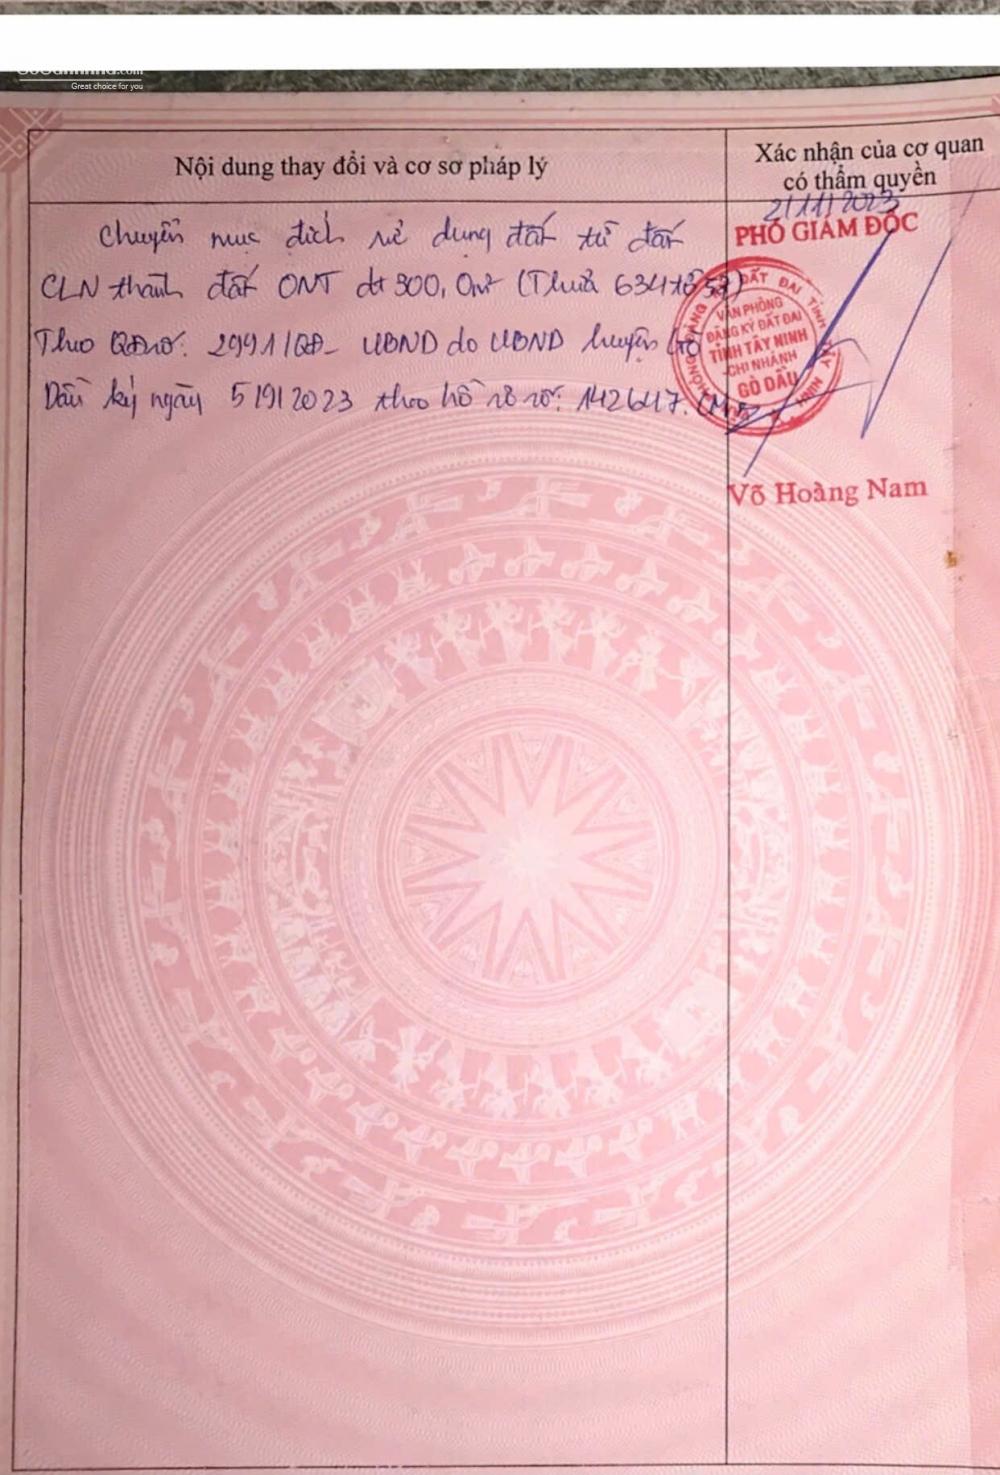 Great choice for you
Nội dung thay đổi và cơ sơ pháp lý
Xác nhận của cơ quan
có thẩm quyền
2/11/2023
PHÓ GIÁM ĐỐC
Chuyển mục đích sử dụng đất từ đất
CLN thành đất ONT dt 300,0m² (Thửa 634 tờ 53)
Theo QĐ số: 2991/QĐ-UBND do UBND huyện Gò
Dầu ký ngày 5/9/2023 theo hồ sơ số: 142647.
VĂN PHÒNG
ĐĂNG KÝ ĐẤT ĐAI
TỈNH TÂY NINH
CHI NHÁNH
GÒ DẦU
Võ Hoàng Nam